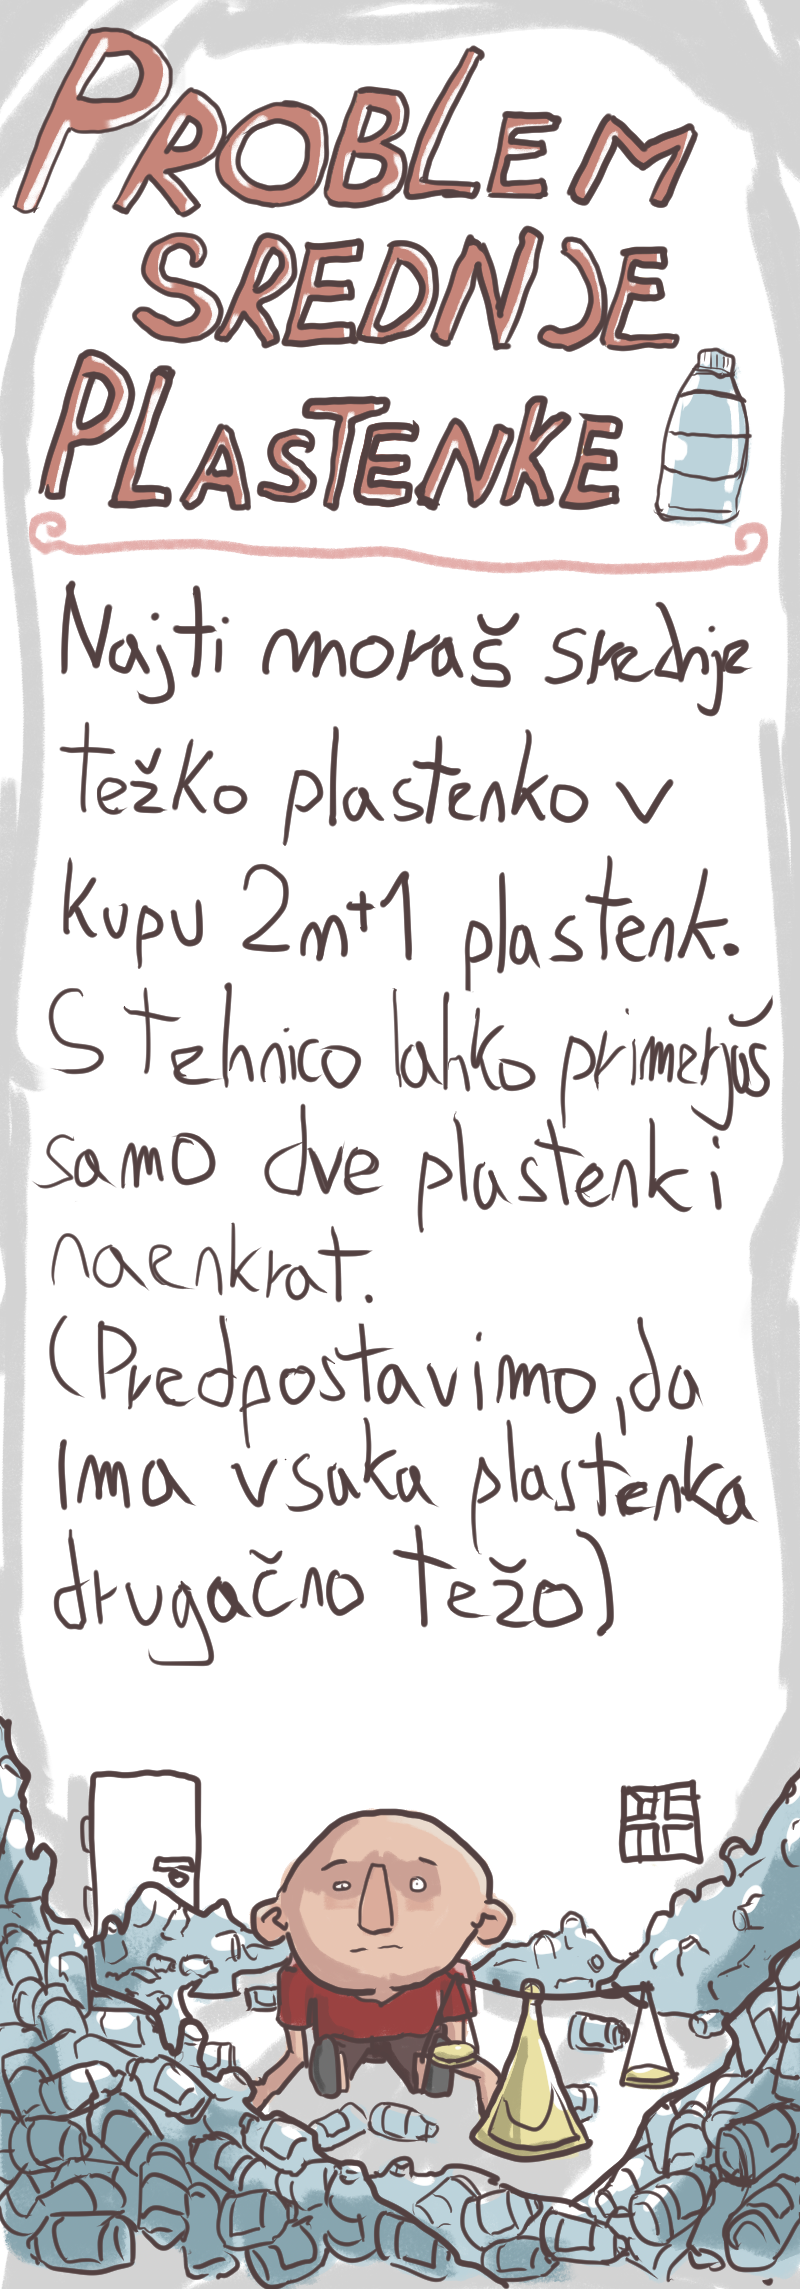 PROBLEM
SREDNJE
PLASTENKE
Najti moraš srednje
težko plastenko v
kupu 2n+1 plastenk.
S tehnico lahko primerjaš
samo dve plastenki
naenkrat.
(Predpostavimo, da
ima vsaka plastenka
drugačno težo)